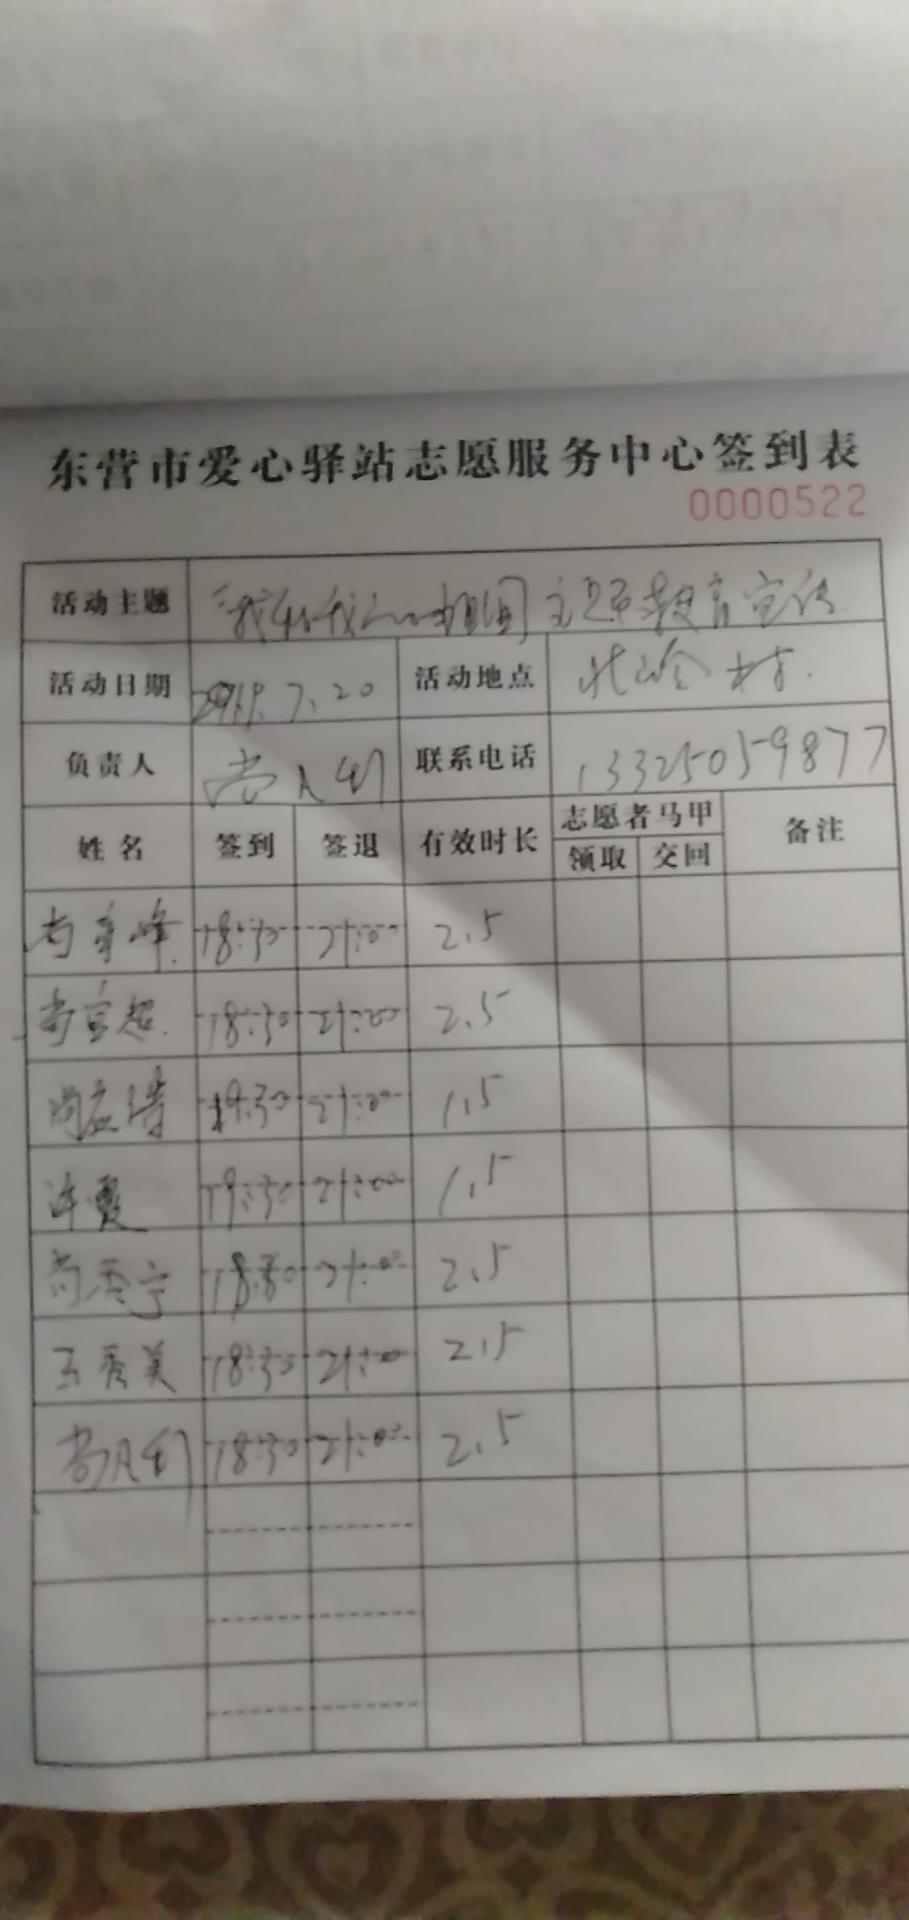 东营市爱心驿站志愿服务中心签到表
0000522
活动主题 我和我的祖国 主题教育宣传
活动日期 2019.7.20 活动地点 村
负责人 联系电话 13325059877
姓名 签到 签退 有效时长 志愿者马甲 备注
领取 交回
18:30 21:00 2.5
18:30 21:00 2.5
19:30 21:00 1.5
许霞 19:30 21:00 1.5
18:30 21:00 2.5
王秀美 18:30 21:00 2.5
18:30 21:00 2.5